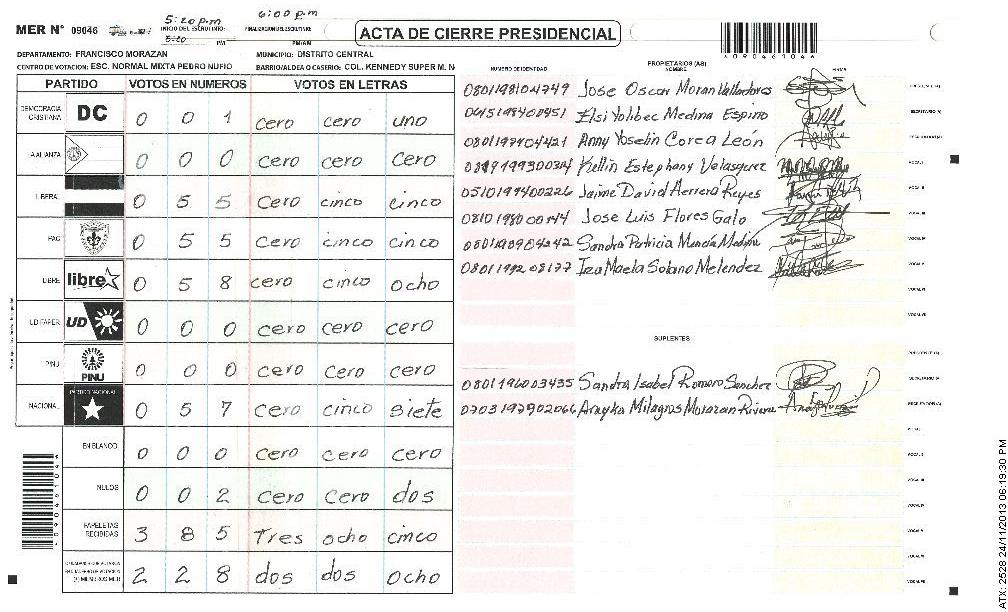 MER N° 09046
5:20 p.m
6:00 p.m
INICIO DEL ESCRUTINIO:
5:20 PM
FINALIZACION DEL ESCRUTINIO:
PM/AM
ACTA DE CIERRE PRESIDENCIAL
*09046104*
DEPARTAMENTO: FRANCISCO MORAZAN
MUNICIPIO: DISTRITO CENTRAL
CENTRO DE VOTACION: ESC. NORMAL MIXTA PEDRO NUFIO
BARRIO/ALDEA O CASERIO: COL. KENNEDY SUPER M. N
PARTIDO VOTOS EN NUMEROS VOTOS EN LETRAS
DEMOCRACIA CRISTIANA DC 0 0 1 cero cero uno
LA ALIANZA 0 0 0 cero cero cero
LIBERAL 0 5 5 cero cinco cinco
PAC 0 5 5 cero cinco cinco
LIBRE libre 0 5 8 cero cinco ocho
UD FAPER UD 0 0 0 cero cero cero
PINU PINU 0 0 0 cero cero cero
NACIONAL PARTIDO NACIONAL 0 5 7 cero cinco siete
EN BLANCO 0 0 0 cero cero cero
NULOS 0 0 2 cero cero dos
PAPELETAS RECIBIDAS 3 8 5 Tres ocho cinco
(+) MIEMBROS MER 2 2 8 dos dos ocho
*09046104*
NUMERO DE IDENTIDAD
PROPIETARIOS (AS)
NOMBRE
FIRMA
0801198104749 Jose Oscar Moran Valladares PRESIDENTE (A)
Elsi Yolibec Medina Espino SECRETARIO (A)
0801197404421 Anny Yoselin Corea León ESCRUTADOR (A)
Kellin Estephany Velasquez VOCAL I
0510199400226 Jaime David Herrera Reyes VOCAL II
Jose Luis Flores Galo VOCAL III
Sandra Patricia Mencía Medina VOCAL IV
0801199208177 Iza Maela Solano Melendez VOCAL V
VOCAL VI
VOCAL VII
SUPLENTES
PRESIDENTE (A)
0801196003435 Sandra Isabel Romero Sanchez SECRETARIO (A)
0703197902066 Anayka Milagros Morazan Rivera ESCRUTADOR (A)
VOCAL I
VOCAL II
VOCAL III
VOCAL IV
VOCAL V
VOCAL VI
VOCAL VII
ATX: 2528 24/11/2013 06:19:30 PM